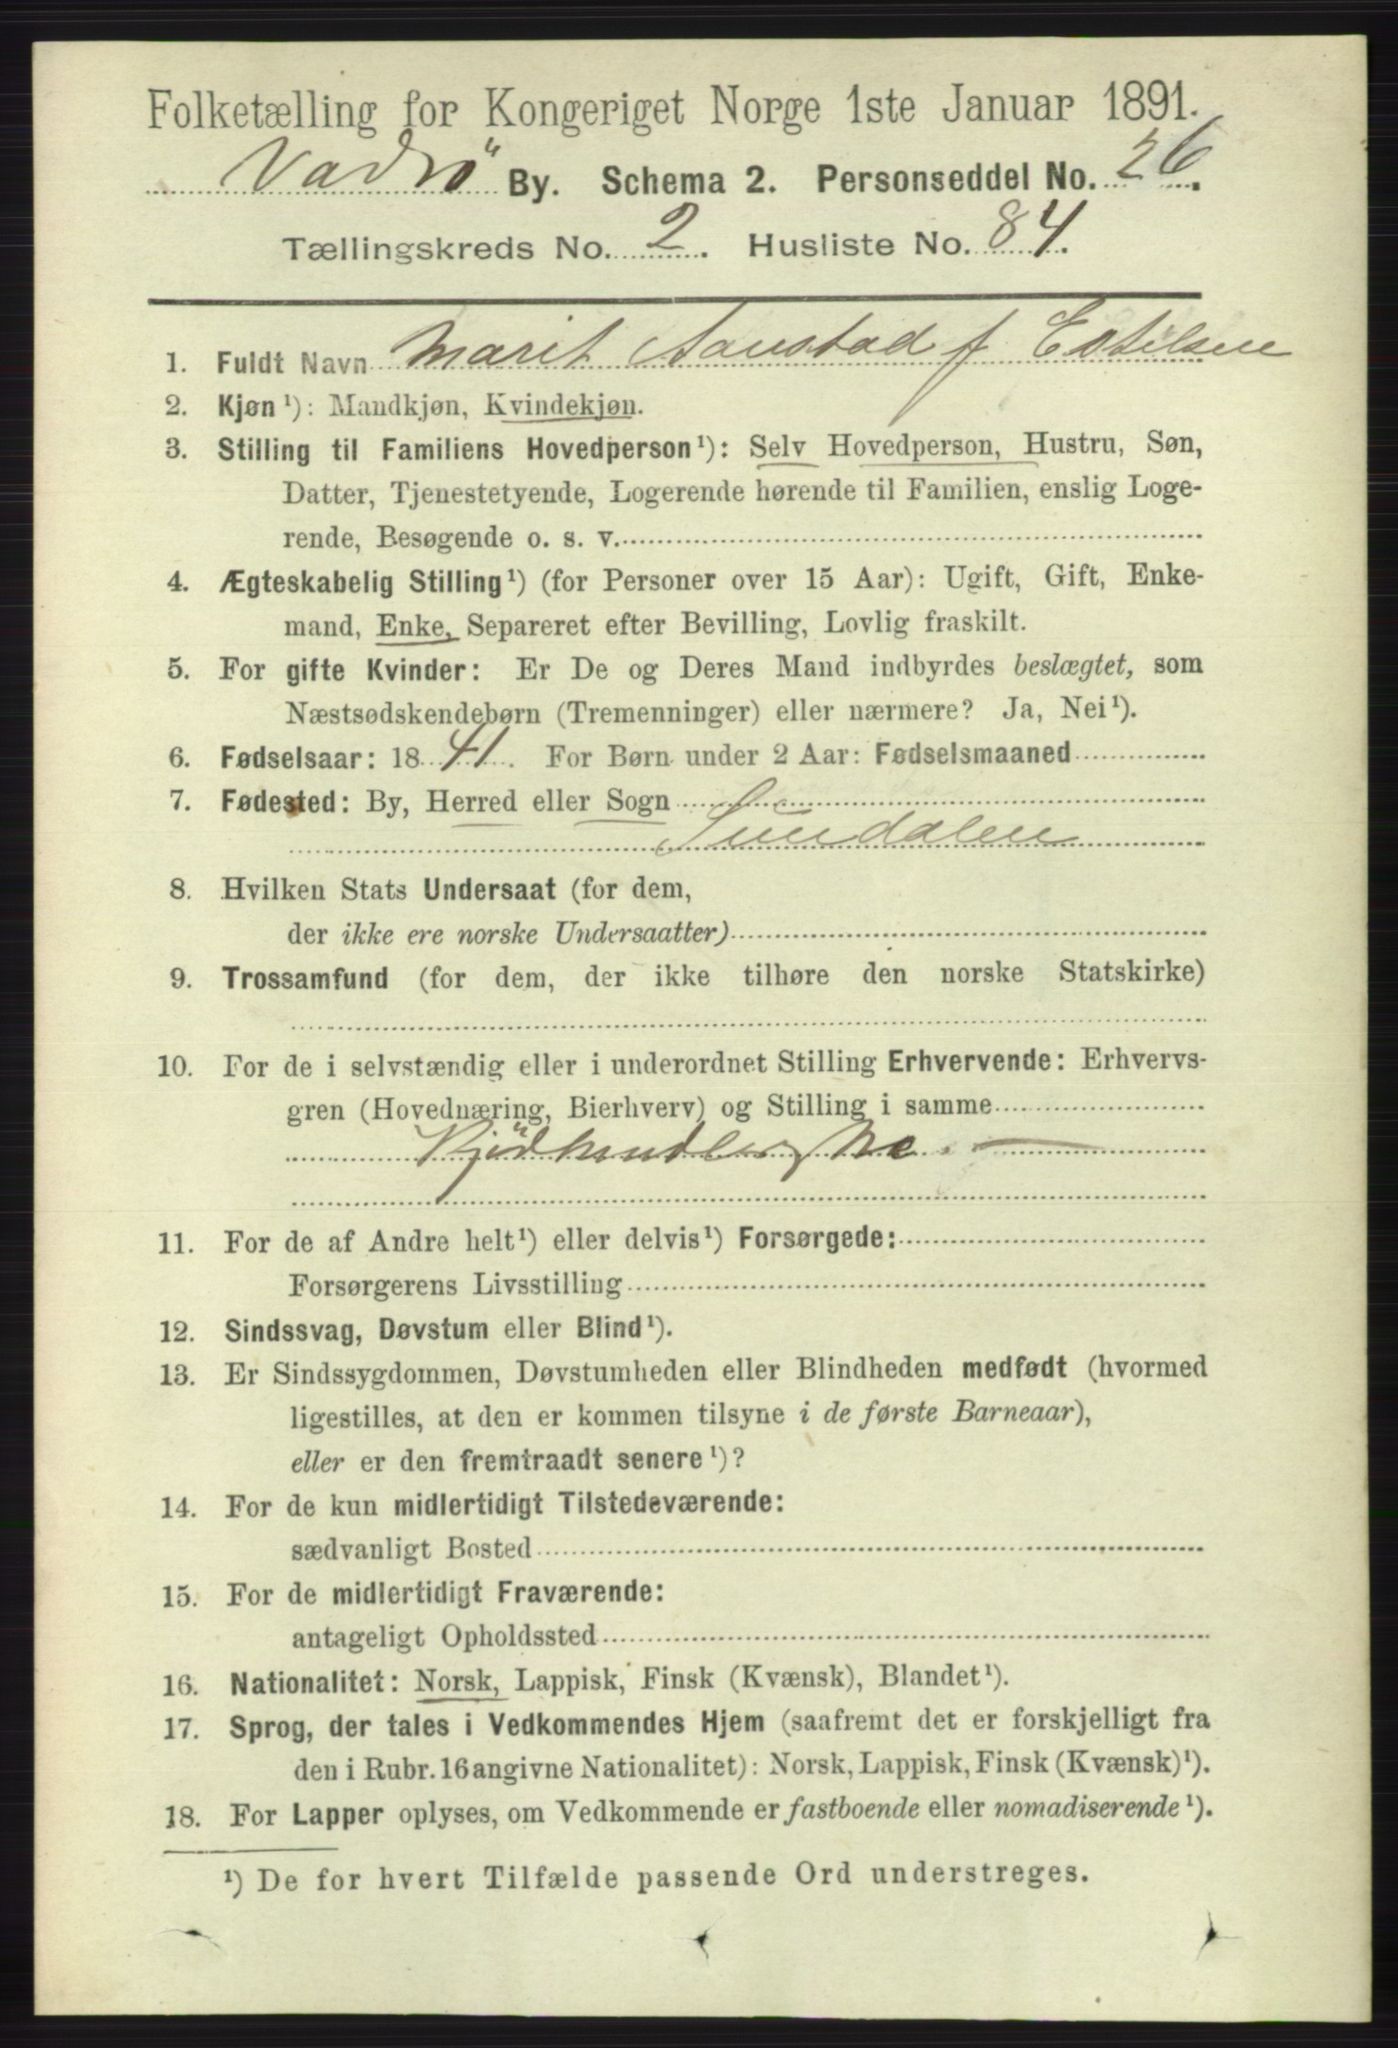 Folketælling for Kongeriget Norge 1ste Januar 1891.
Vadsö By. Schema 2. Personseddel No. 26.
Tællingskreds No. 2. Husliste No. 84.
1. Fuldt Navn Marit Aanstad f Estilsen
2. Kjøn¹): Mandkjøn, Kvindekjøn.
3. Stilling til Familiens Hovedperson¹): Selv Hovedperson, Hustru, Søn,
Datter, Tjenestetyende, Logerende hørende til Familien, enslig Loge-
rende, Besøgende o. s. v.
4. Ægteskabelig Stilling¹) (for Personer over 15 Aar): Ugift, Gift, Enke-
mand, Enke, Separeret efter Bevilling, Lovlig fraskilt.
5. For gifte Kvinder: Er De og Deres Mand indbyrdes beslægtet, som
Næstsødskendebørn (Tremenninger) eller nærmere? Ja, Nei¹).
6. Fødselsaar: 1841. For Børn under 2 Aar: Fødselsmaaned
7. Fødested: By, Herred eller Sogn
Sundalen
8. Hvilken Stats Undersaat (for dem,
der ikke ere norske Undersaatter)
9. Trossamfund (for dem, der ikke tilhøre den norske Statskirke)
10. For de i selvstændig eller i underordnet Stilling Erhvervende: Erhvervs-
gren (Hovednæring, Bierhverv) og Stilling i samme
Kjödhandlerske.
11. For de af Andre helt¹) eller delvis¹) Forsørgede:
Forsørgerens Livsstilling
12. Sindssvag, Døvstum eller Blind¹).
13. Er Sindssygdommen, Døvstumheden eller Blindheden medfødt (hvormed
ligestilles, at den er kommen tilsyne i de første Barneaar),
eller er den fremtraadt senere¹)?
14. For de kun midlertidigt Tilstedeværende:
sædvanligt Bosted
15. For de midlertidigt Fraværende:
antageligt Opholdssted
16. Nationalitet: Norsk, Lappisk, Finsk (Kvænsk), Blandet¹).
17. Sprog, der tales i Vedkommendes Hjem (saafremt det er forskjelligt fra
den i Rubr. 16 angivne Nationalitet): Norsk, Lappisk, Finsk (Kvænsk)¹).
18. For Lapper oplyses, om Vedkommende er fastboende eller nomadiserende¹).
¹) De for hvert Tilfælde passende Ord understreges.